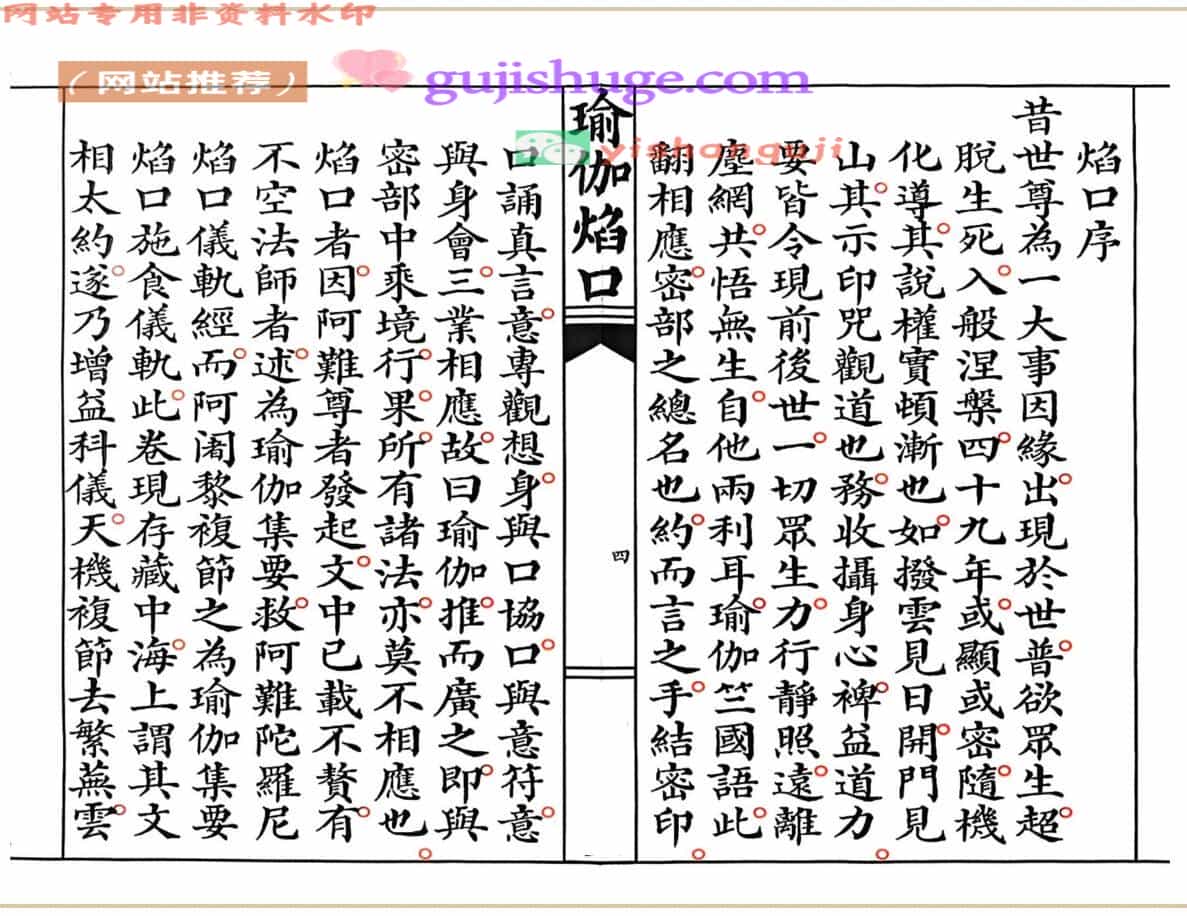 网站专用非资料水印
（网站推荐）
gujishuge.com
yishanguji
焰口序
昔世尊為一大事因緣出現於世普欲眾生超
脫生死入般涅槃四十九年或顯或密隨機
化導其說權實頓漸也如撥雲見日開門見
山其示印咒觀道也務收攝身心裨益道力
要皆令現前後世一切眾生力行靜照遠離
塵網共悟無生自他兩利耳瑜伽竺國語此
翻相應密部之總名也約而言之手結密印
瑜伽焰口
四
口誦真言意專觀想身與口協口與意符意
與身會三業相應故曰瑜伽推而廣之即與
密部中乘境行果所有諸法亦莫不相應也
焰口者因阿難尊者發起文中已載不贅有
不空法師者述為瑜伽集要救阿難陀羅尼
焰口儀軌經而阿阇黎複節之為瑜伽集要
焰口施食儀軌此卷現存藏中海上謂其文
相太約遂乃增益科儀天機複節去繁蕪雲